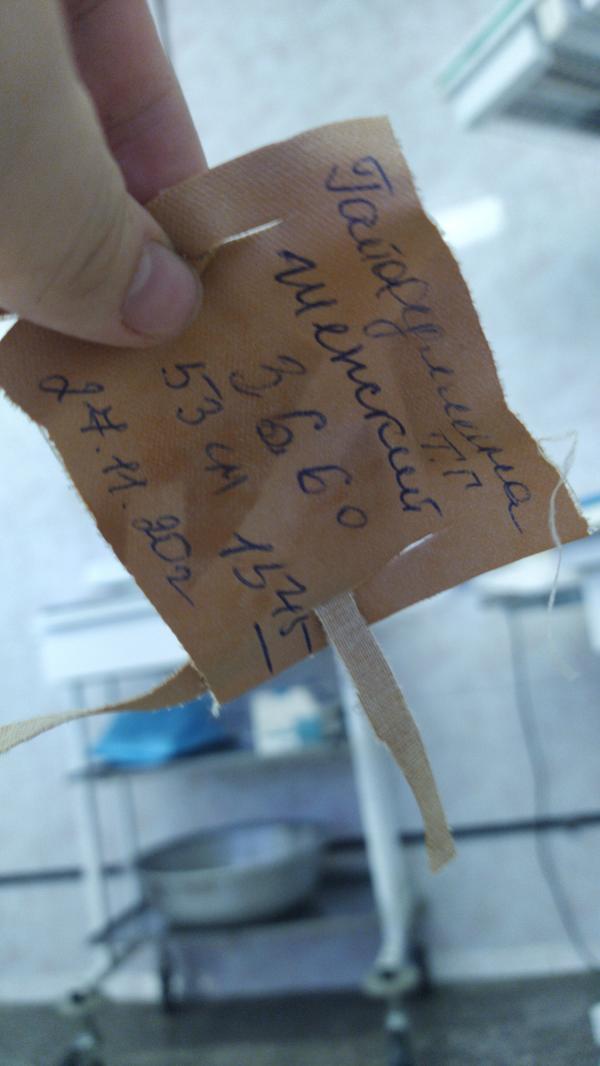 Гайфуллина
Т.Г
женский
3660
53 см 15 45
27.11.20г